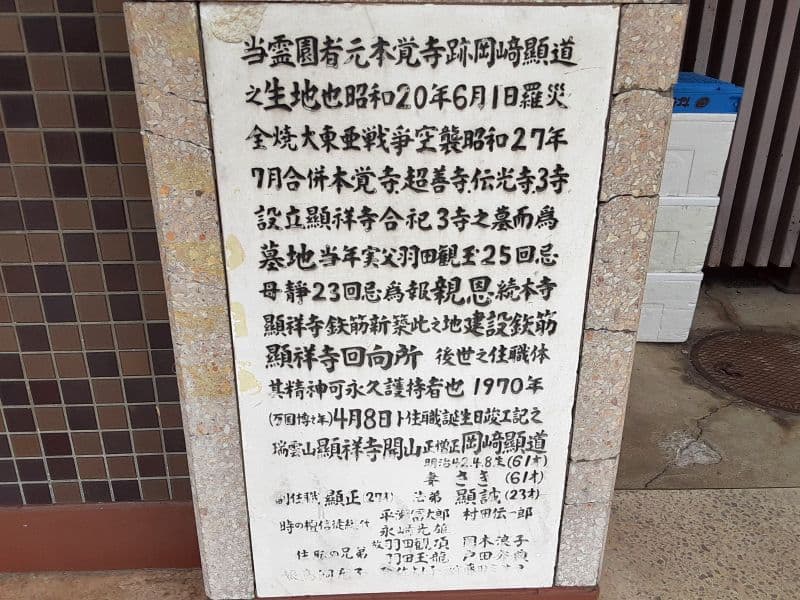 当霊園者元本覚寺跡岡﨑顯道
之生地也昭和20年6月1日羅災
全焼大東亜戦爭空襲昭和27年
7月合併本覚寺超善寺伝光寺3寺
設立顯祥寺合祀3寺之墓而為
墓地当年実父羽田観玉25回忌
母靜23回忌為報親恩続本寺
顯祥寺鉄筋新築此之地建設鉄筋
顯祥寺回向所 後世之住職体
其精神可永久護持者也 1970年
(万国博之年)4月8日ト住職誕生日竣工記之
瑞雲山顯祥寺開山正僧正岡﨑顯道
明治42.4.8生(61才)
妻 さき (61才)
副住職 顯正(27才) 法弟 顯誠(23才)
信太郎 村田伝一郎
時の檀信徒総代
永崎光雄
故羽田観項 岡本浪子
住職の兄弟 羽田玉龍 戸田